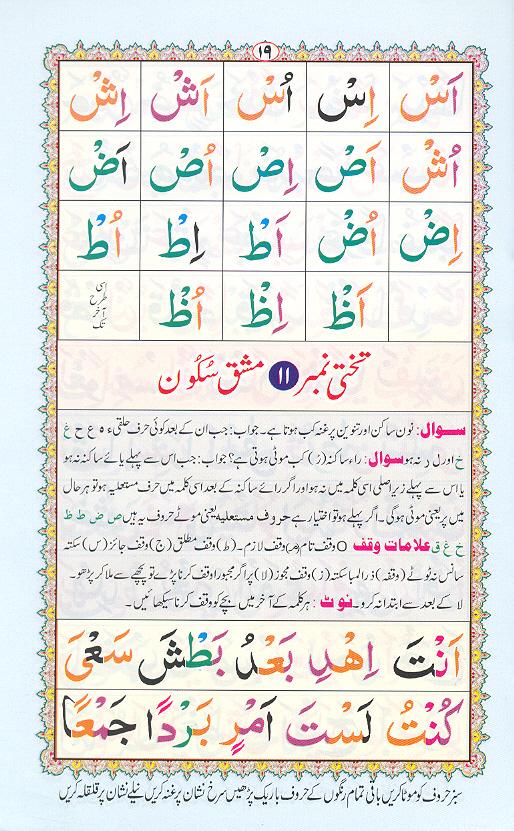 ١٩
اَسْ اِسْ اُسْ اَشْ اِشْ
اُشْ اَصْ اِصْ اُصْ اَضْ
اِضْ اُضْ اَطْ اِطْ اُطْ
اَظْ اِظْ اُظْ اسی طرح آخر تک
تختی نمبر ۱۱ مشق سُکُون
سوال: نون ساکن اور تنوین پر غنہ کب ہوتا ہے۔ جواب: جب ان کے بعد کوئی حرف حلقی ء ہ ع ح غ
خ اور ل ر نہ ہو سوال: راء ساکنہ (رْ) کب موٹی ہوتی ہے؟ جواب: جب اس سے پہلے یائے ساکنہ نہ ہو
یا اس سے پہلے زیر اصلی اسی کلمہ میں نہ ہو اور اگر رائے ساکنہ کے بعد اسی کلمہ میں حرف مستعلیہ ہو تو ہر حال
میں پر یعنی موٹی ہوگی۔ اگر پہلے ہو تو اختیار ہے حروف مستعلیہ یعنی موٹے حروف یہ ہیں ص ض ط ظ
خ غ ق علامات وقف O وقف تام (مـ) وقف لازم۔ (ط) وقف مطلق (ج) وقف جائز (س) سکتہ
سانس نہ ٹوٹے (وقفہ) ذرا لمبا سکتہ (ز) وقف مجوز (لا) پر اگر مجبورا وقف کرنا پڑے تو پیچھے سے ملا کر پڑھو۔
لا کے بعد سے ابتدا نہ کرو۔ نوٹ: ہر کلمہ کے آخر میں بچے کو وقف کرنا سیکھائیں۔
اَنْتَ اِهْدِ بَعْدُ بَطْشَ سَعْىَ
كُنْتُ لَسْتَ اَمْرٍ بَرْدًا جَمْعًا
سبز حروف کو موٹا کریں باقی تمام رنگوں کے حروف باریک پڑھیں سرخ نشان پر غنہ کریں نیلے نشان پر قلقلہ کریں